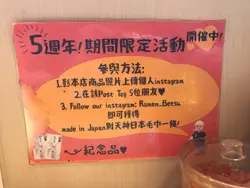 5週年!期間限定活動
開催中!
參與方法:
1.影本店商品照片上傳個人instagram
2.在該Post Tag 5位朋友♥
3. Follow our instagram: Ramen_Betsu
即可獲得
made in Japan別天神日本毛巾一條!
紀念品♥